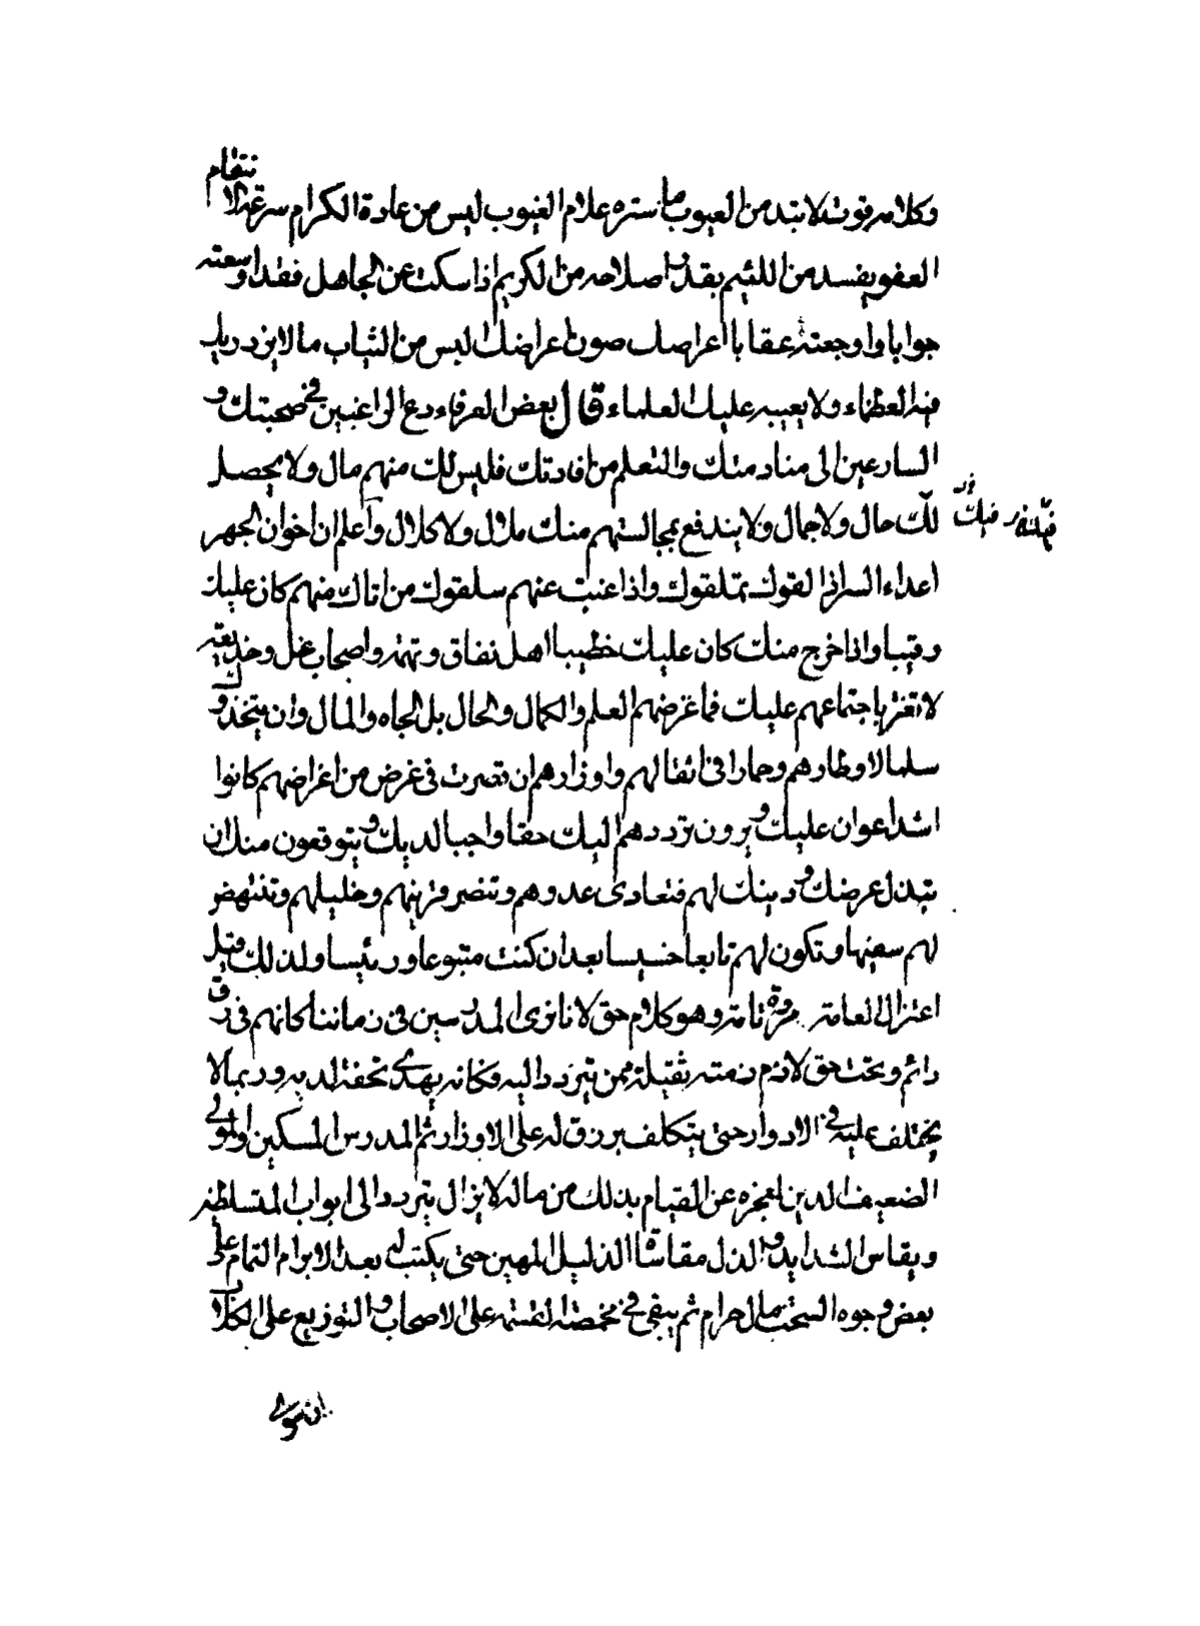 وكلامه قوت لا تبد من العيوب ما ستره علام الغيوب ليس من عادة الكرام سرعة الانتقام
العفو يفسد من اللئيم بقدر اصلاحه من الكريم اذا سكت عن الجاهل فقد اوسعته
جوابا واوجعته عقابا اعراضك صون اعراضك البس من الثياب ما لا يزدريك
فيه العظماء ولا يعيبه عليك العلماء قال بعض العرفاء دع الراغبين في صحبتك و
السارعين الى منادمتك والتعلم من افادتك فليس لك منهم مال ولا يحصل
لك حال ولا جمال ولا يندفع بمجالستهم منك ملال ولا كلال واعلم ان اخوان الجهر
اعداء السر اذا لقوك تملقوك واذا غبت عنهم سلقوك من اتاك منهم كان عليك
رقيبا واذا خرج منك كان عليك خطيبا اهل نفاق و واصحاب غل وخديعة
لا تغتر باجتماعهم عليك فما غرضهم العلم والكمال والحال بل الجاه والمال وان يتخذوك
سلما لاوطارهم وحمارا في اثقالهم واوزارهم ان قصرت في غرض من اغراضهم كانوا
اشد اعوان عليك ويرون ترددهم اليك حقا واجبا لديك ويتوقعون منك ان
تبذل عرضك ودينك لهم فتعادى عدوهم وتنصر قرينهم وخليلهم وتنتهض
لهم سفيها وتكون لهم تابعا خسيسا بعد ان كنت متبوعا ورئيسا ولذلك قيل
اعتزال العامة مروة تامة وهو كلام حق لانا نرى المدرسين في زماننا كانهم في رق
دائم وتحت حق لازم ذمته ثقيلة ممن يتردد اليه فكانه يهدى تحفة لديه وربما لا
يختلف عليه في الادوار حتى يتكلف برزق له على الاوزار ثم المدرس المسكين والمولى
الضعيف الدين لعجزه عن القيام بذلك من ماله لا يزال يتردد الى ابواب المتسلطين
ويقاس الشدايد والذل مقاساة الذليل المهين حتى يكتب له بعد الابرام التام على
بعض وجوه السحت مال حرام ثم يبقى في مخمصة القسمة على الاصحاب والتوزيع على الكلاب
ان سوى